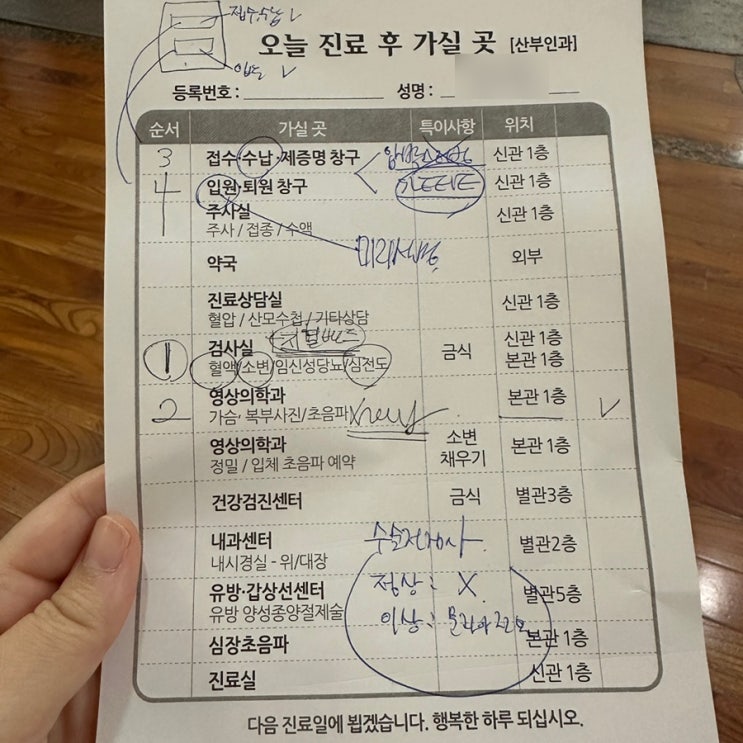 접수.수납 ✓
입퇴 ✓
오늘 진료 후 가실 곳 [산부인과]
등록번호 : 성명 :
순서 가실 곳 특이사항 위치
3 접수·수납·제증명 창구 신관 1층
4 입원·퇴원 창구 신관 1층
주사실 신관 1층
주사 / 접종 / 수액
미리설명
약국 외부
진료상담실 신관 1층
혈압 / 산모수첩 / 기타상담
1 검사실 금식 신관 1층
본관 1층
혈액/소변/임신성당뇨/심전도
2 영상의학과 본관 1층 ✓
가슴· 복부사진/초음파 X-ray
영상의학과 소변 채우기 본관 1층
정밀 / 입체 초음파 예약
건강검진센터 금식 별관3층
내과센터 별관2층
내시경실 - 위/대장
수술전검사
유방·갑상선센터 별관5층
유방 양성종양절제술
정상 : X
이상 :
심장초음파 본관 1층
진료실 신관 1층
다음 진료일에 뵙겠습니다. 행복한 하루 되십시오.